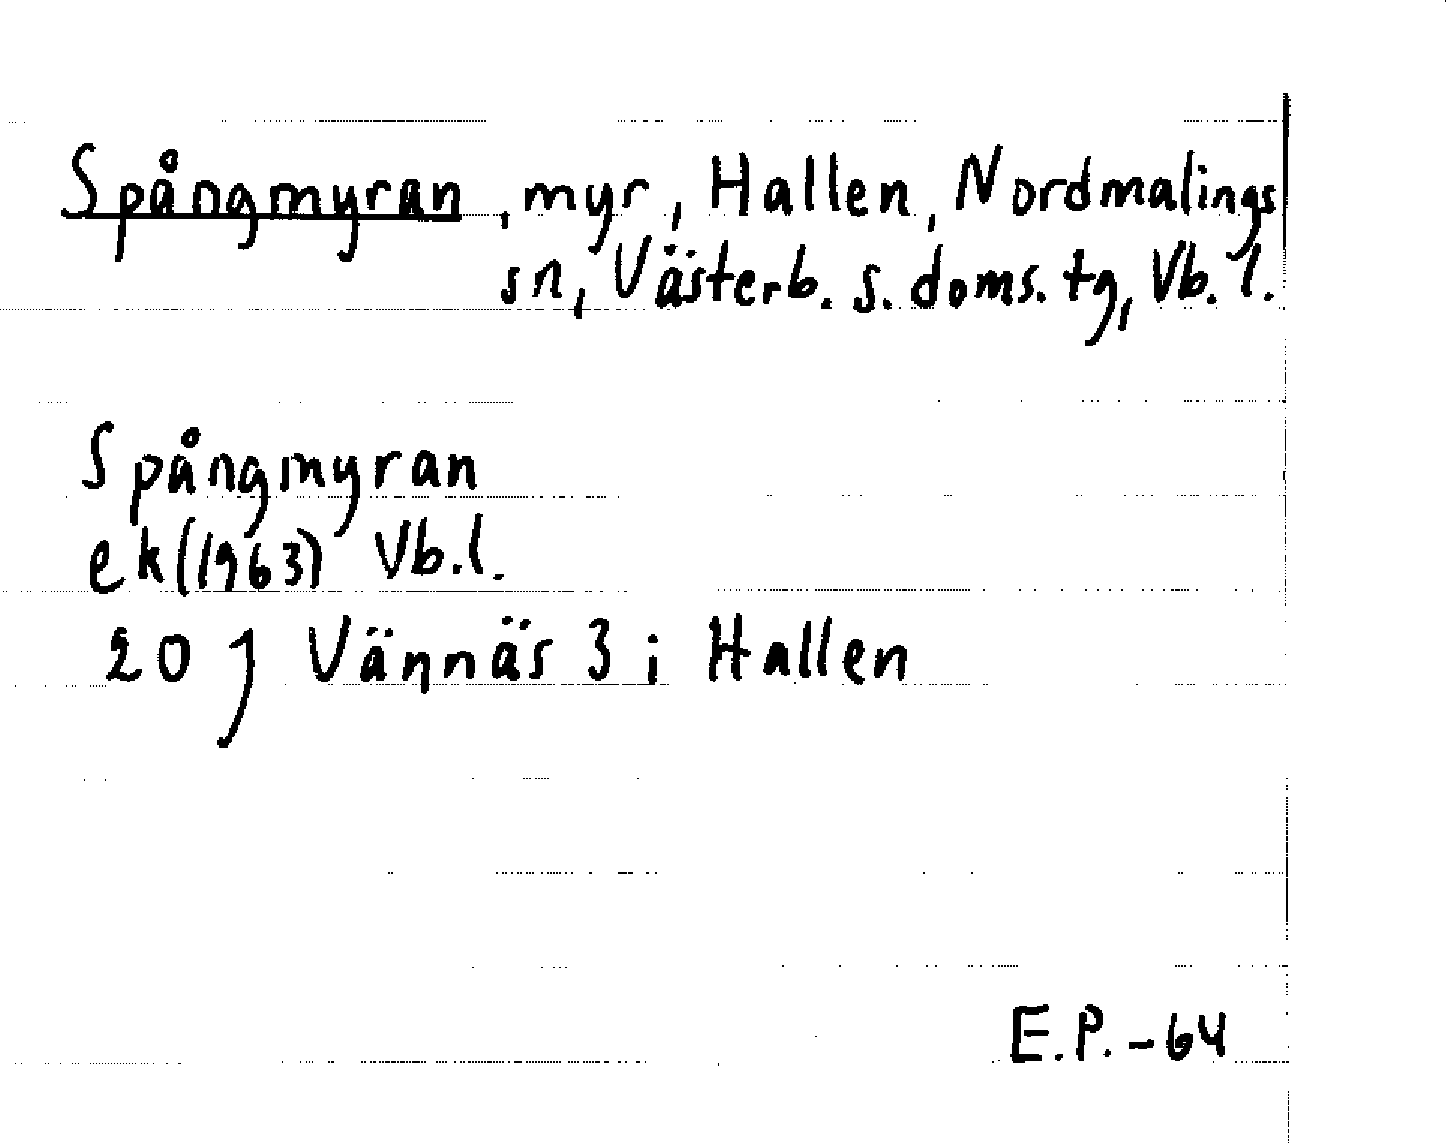 Spångmyran, myr, Hallen, Nordmalings
sn, Västerb. s. doms. tg, Vb. l.
Spångmyran
ek (1963) Vb. l.
20 J Vännäs 3 i Hallen
E.P. -64